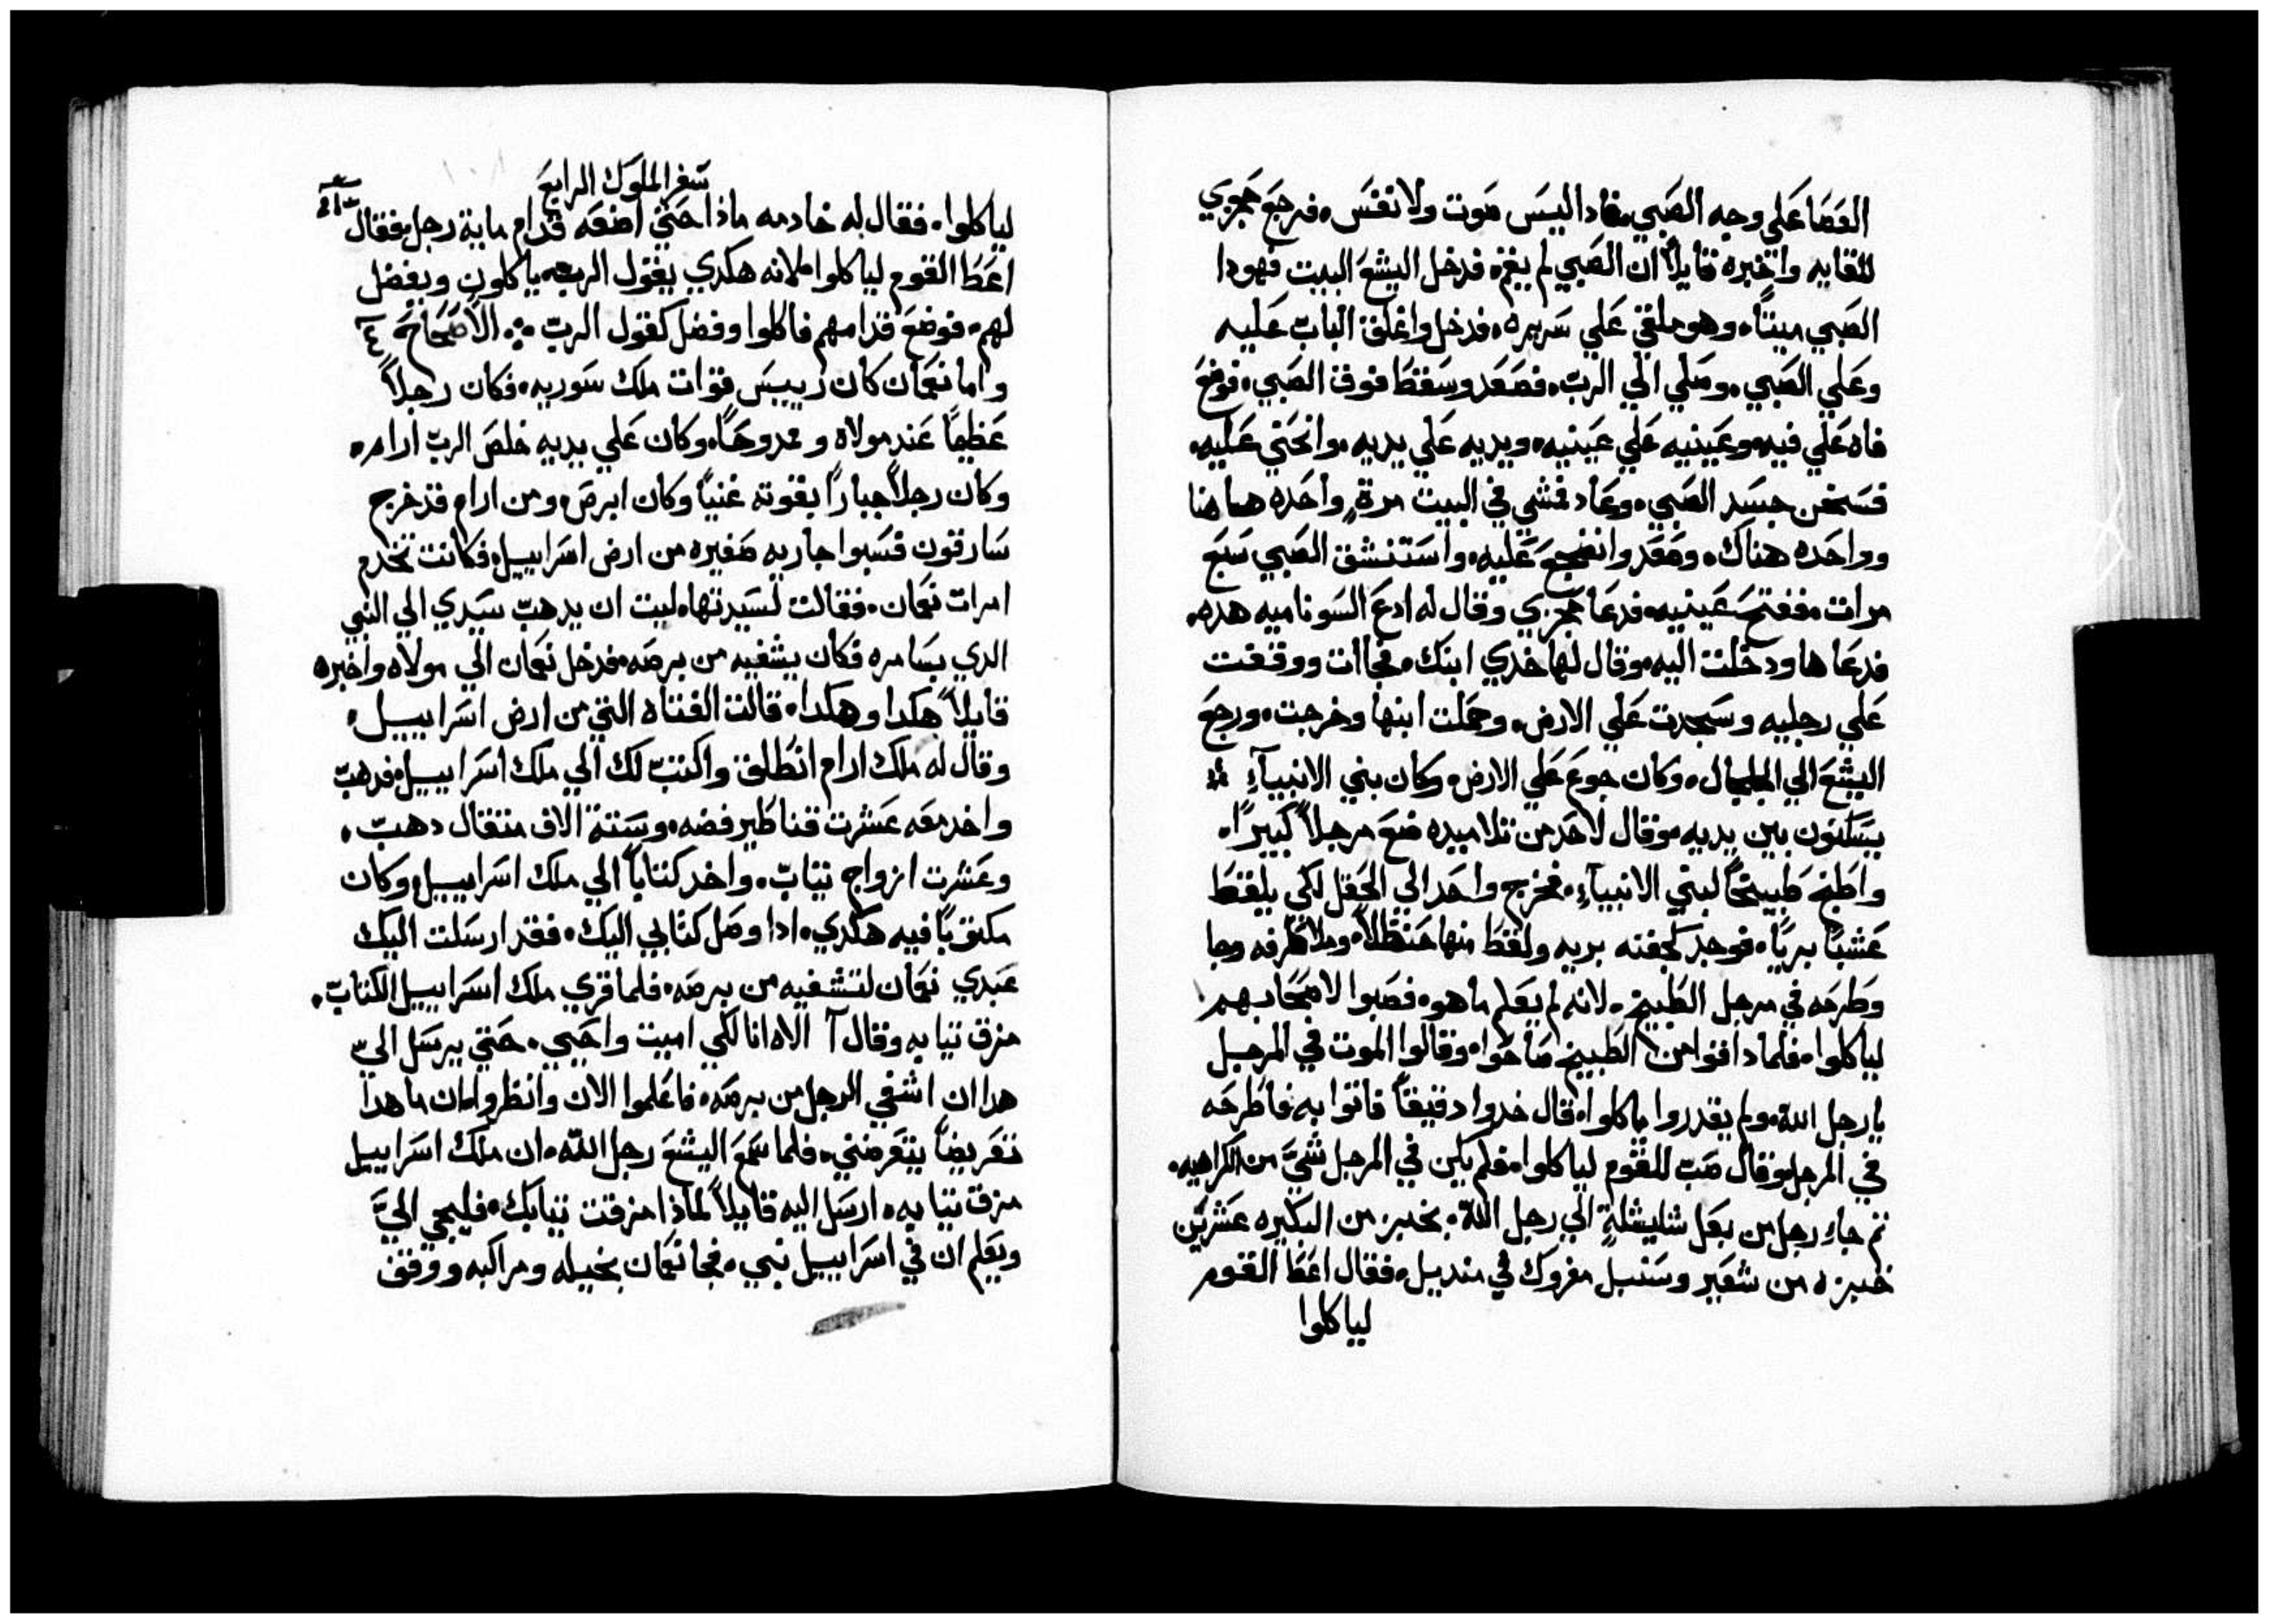 العصا علي وجه الصبي فادا ليس صوت ولا نفس. فرجع جحزي
للقايه واخبره قايلاً ان الصبي لم يقم. فدخل اليشع البيت فهودا
الصبي ميتاً. وهو ملقي علي سريره. فدخل واغلق الباب عليه
وعلي الصبي. وصلي الي الرب. فصعد وسقط فوق الصبي. فوضع
فاه علي فيه. وعينيه علي عينيه. ويديه علي يديه. وانحني عليه.
فسخن جسد الصبي. وعاد فمشي في البيت مرةٍ واحده هاهنا
وواحده هناك. وصعد وانضجع عليه. واستنشق الصبي سبع
مرات. ففتح عينيه. فدعا جحزي وقال له ادع السوناميه هده.
فدعاها ودخلت اليه. وقال لها خدي ابنك. فجاات ووقعت
علي رجليه وسجدت علي الارض. وحملت ابنها وخرجت. ورجع
اليشع الي الجلجال. وكان جوع علي الارض. وكان بني الانبيآءِ
يسكنون بين يديه. وقال لاحد من تلاميده ضع مرجلاً كبيراً.
واطبخ طبيخاً لبني الانبيآءِ. فخرج واحد الي الحقل لكي يلقط
عشباً برياً. فوجد كجفنه بريه ولقط منها حنظلاً. وملا طرفه وجا
وطرحه في مرجل الطبيخ. لانه لم يعلم ما هو. فصبوا لاصحابهم
لياكلوا. فلما داقوا من الطبيخ صاحوا. وقالوا الموت في المرجل
يا رجل اللّه. ولم يقدروا ياكلوا. قال خدوا دقيقاً فاتوا به. فاطرحه
في المرجل. وقال صب للقوم لياكلوا. فلم يكن في المرجل شيَّ من الكراهيه.
ثم جاءِ رجل من بعل شليشلةِ الي رجل اللّه. بخبز من البكيره عشرين
خبزه من شعير وسنبل مفروك في منديل. فقال اعط القوم
لياكلوا
سفر الملوك الرابع
لياكلوا. فقال له خادمه ماذا حتي اضعه قدام ماية رجل. فقال
اعط القوم لياكلوا. لانه هكدي يقول الرب. ياكلون ويفضل
لهم. فوضع قدامهم فاكلوا وفضل كقول الربّ الاصحاح ٤
واما نعمان كان رييس قوات ملك سوريه. فكان رجلاً
عظيماً عند مولاه وممدوحاً. وكان علي يديه خلص الربّ ارام.
وكان رجلاً جباراً بقوته غنياً وكان ابرص. ومن ارام قد خرج
سارقون فسبوا جاريه صغيره من ارض اسراييل. فكانت تخدم
امرات نعمان. فقالت لسيدتها. ليت ان يدهب سيدي الي النبي
الدي بسامره فكان يشفيه من برصه. فدخل نعمان الي مولاه واخبره
قايلاً هكدا وهكدا. قالت الفتاه التي من ارض اسراييل.
وقال له ملك ارام انطلق واكتب لك الي ملك اسراييل. فدهب
واخد معه عشرت قناطير فضه. وستة الاف متقال دهب.
وعشرت ازواج تياب. واخد كتاباً الي ملك اسراييل. وكان
مكتوباً فيه هكدي. ادا وصل كتابي اليك. فقد ارسلت اليك
عبدي نعمان لتشفيه من برصه. فلما قري ملك اسراييل الكتاب.
مزق تيابه وقال آ الاه انا لكي اميت واحيي. حتي يرسل اليّ
هدا ان اشفي الرجل من برصه. فاعلموا الان وانظروا. ان ما هدا
تعريضاً يتعرضني. فلما سمع اليشع رجل اللّه. ان ملك اسراييل
مزق تيابه. ارسل اليه قايلاً لماذا مزقت تيابك. فليجي اليَّ
ويعلم ان في اسراييل نبي. فجا نعمان بخيله ومراكبه ووقف